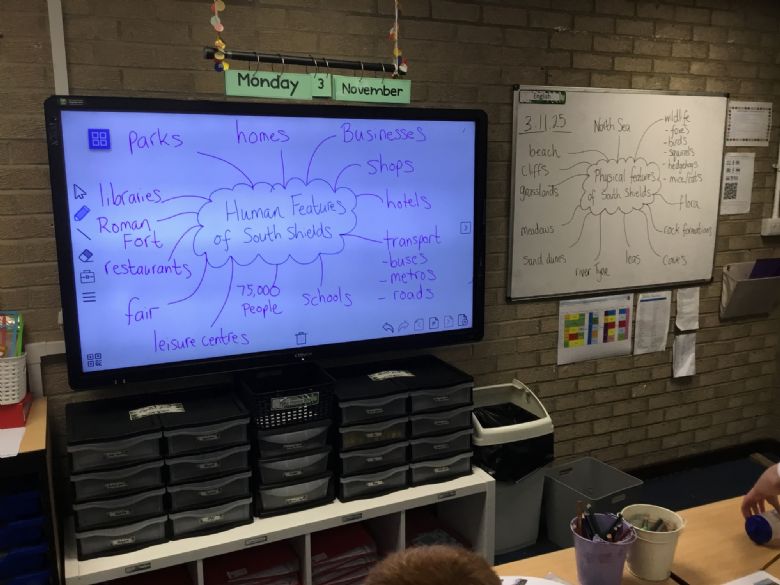 Monday
3
November
parks
homes
Businesses
shops
libraries
Roman
Fort
restaurants
fair
leisure centres
75,000
People
schools
hotels
transport
- buses
- metros
- roads
Human Features
of South Shields
English
3.11.25
North Sea
wildlife
- foxes
- birds
- squirrels
- hedgehogs
- mice/rats
beach
cliffs
grasslands
meadows
sand dunes
river Tyne
leas
caves
rock formations
flora
Physical features
of South Shields